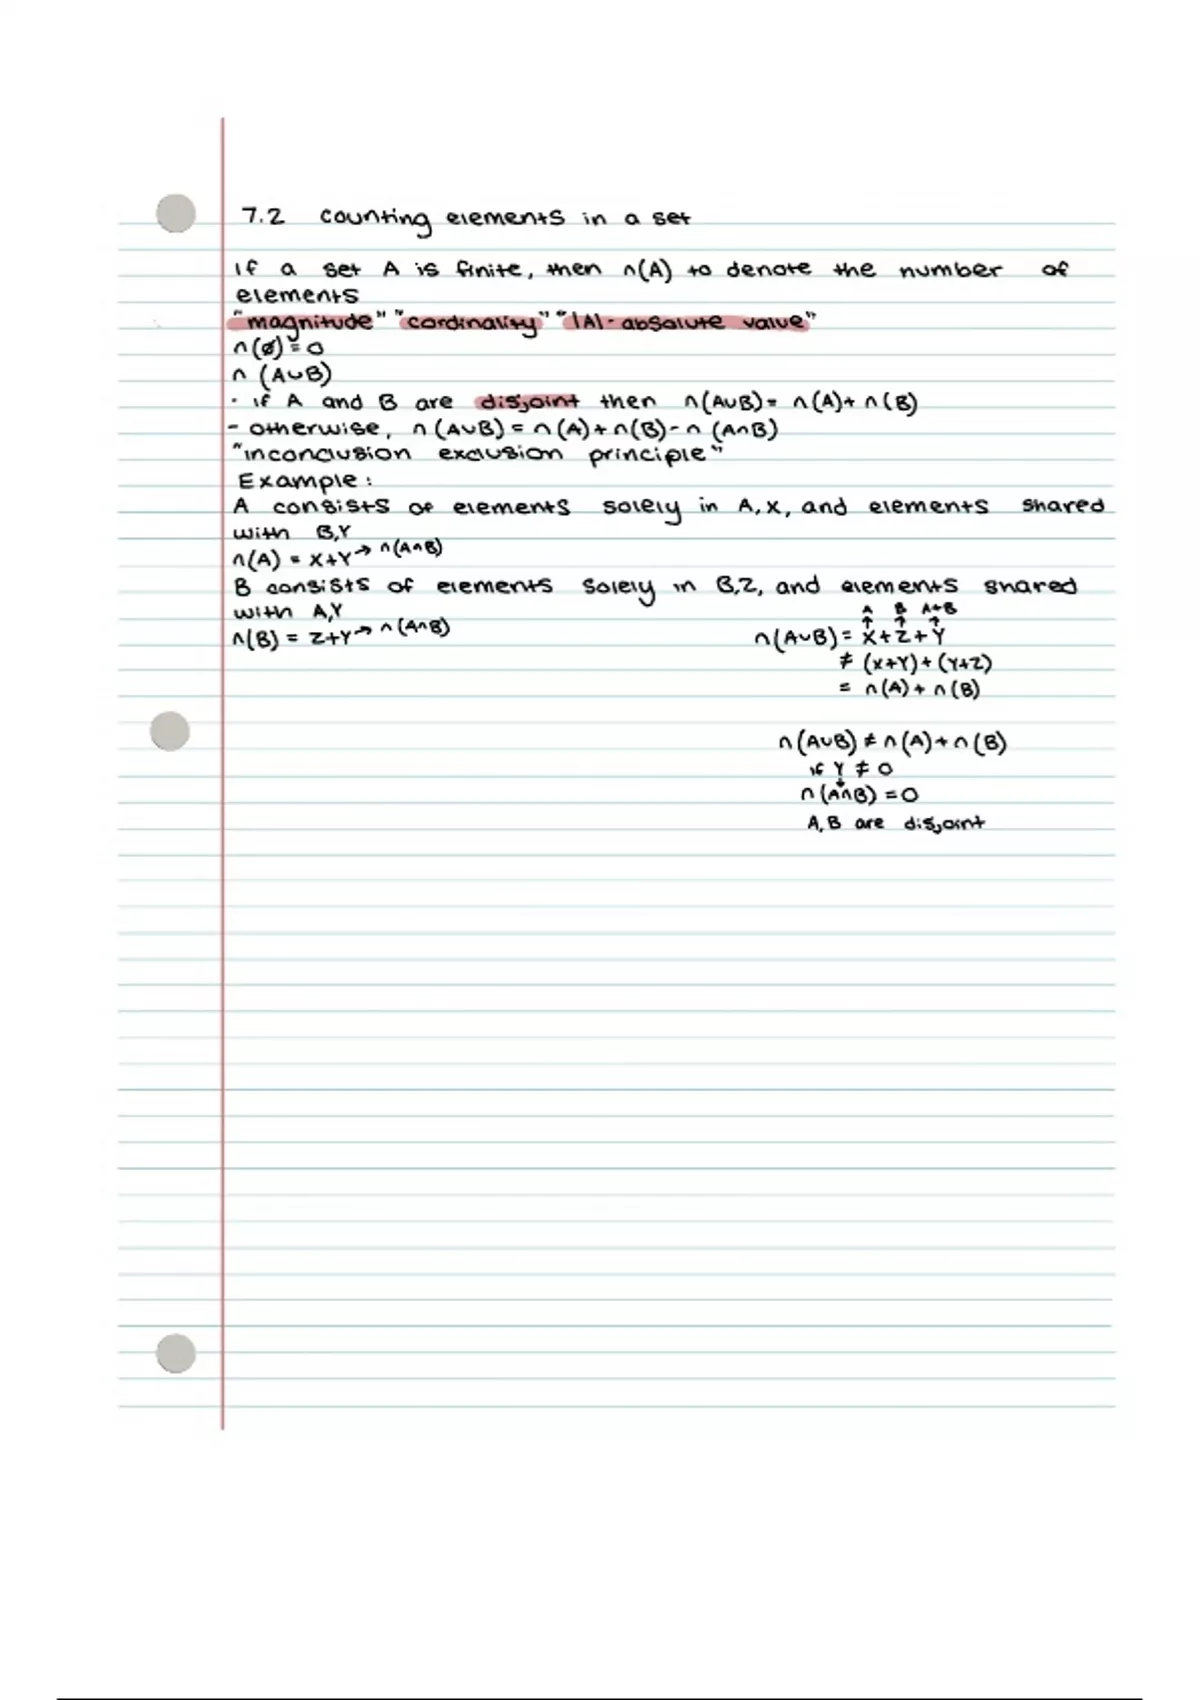 7.2 counting elements in a set
If a set A is finite, then n(A) to denote the number of
elements
"magnitude" "cardinality" "|A|- absolute value"
n(ø)=0
n (A∪B)
- if A and B are disjoint then n(A∪B)= n(A)+ n(B)
- otherwise, n(A∪B)=n(A)+n(B)-n (A∩B)
"inconclusion exclusion principle"
Example:
A consists of elements solely in A,X, and elements shared
with B,Y
n(A) = X+Y→ n(A∩B)
B consists of elements solely in B,Z, and elements shared
with A,Y
n(B) = Z+Y→ n(A∩B)
A B A+B
↑ ↑ ↑
n(A∪B)= X+Z+Y
≠ (X+Y)+(Y+Z)
= n(A)+n(B)
n(A∪B) ≠ n(A)+n(B)
if Y ≠ 0
↓
n(A∩B) =0
A,B are disjoint